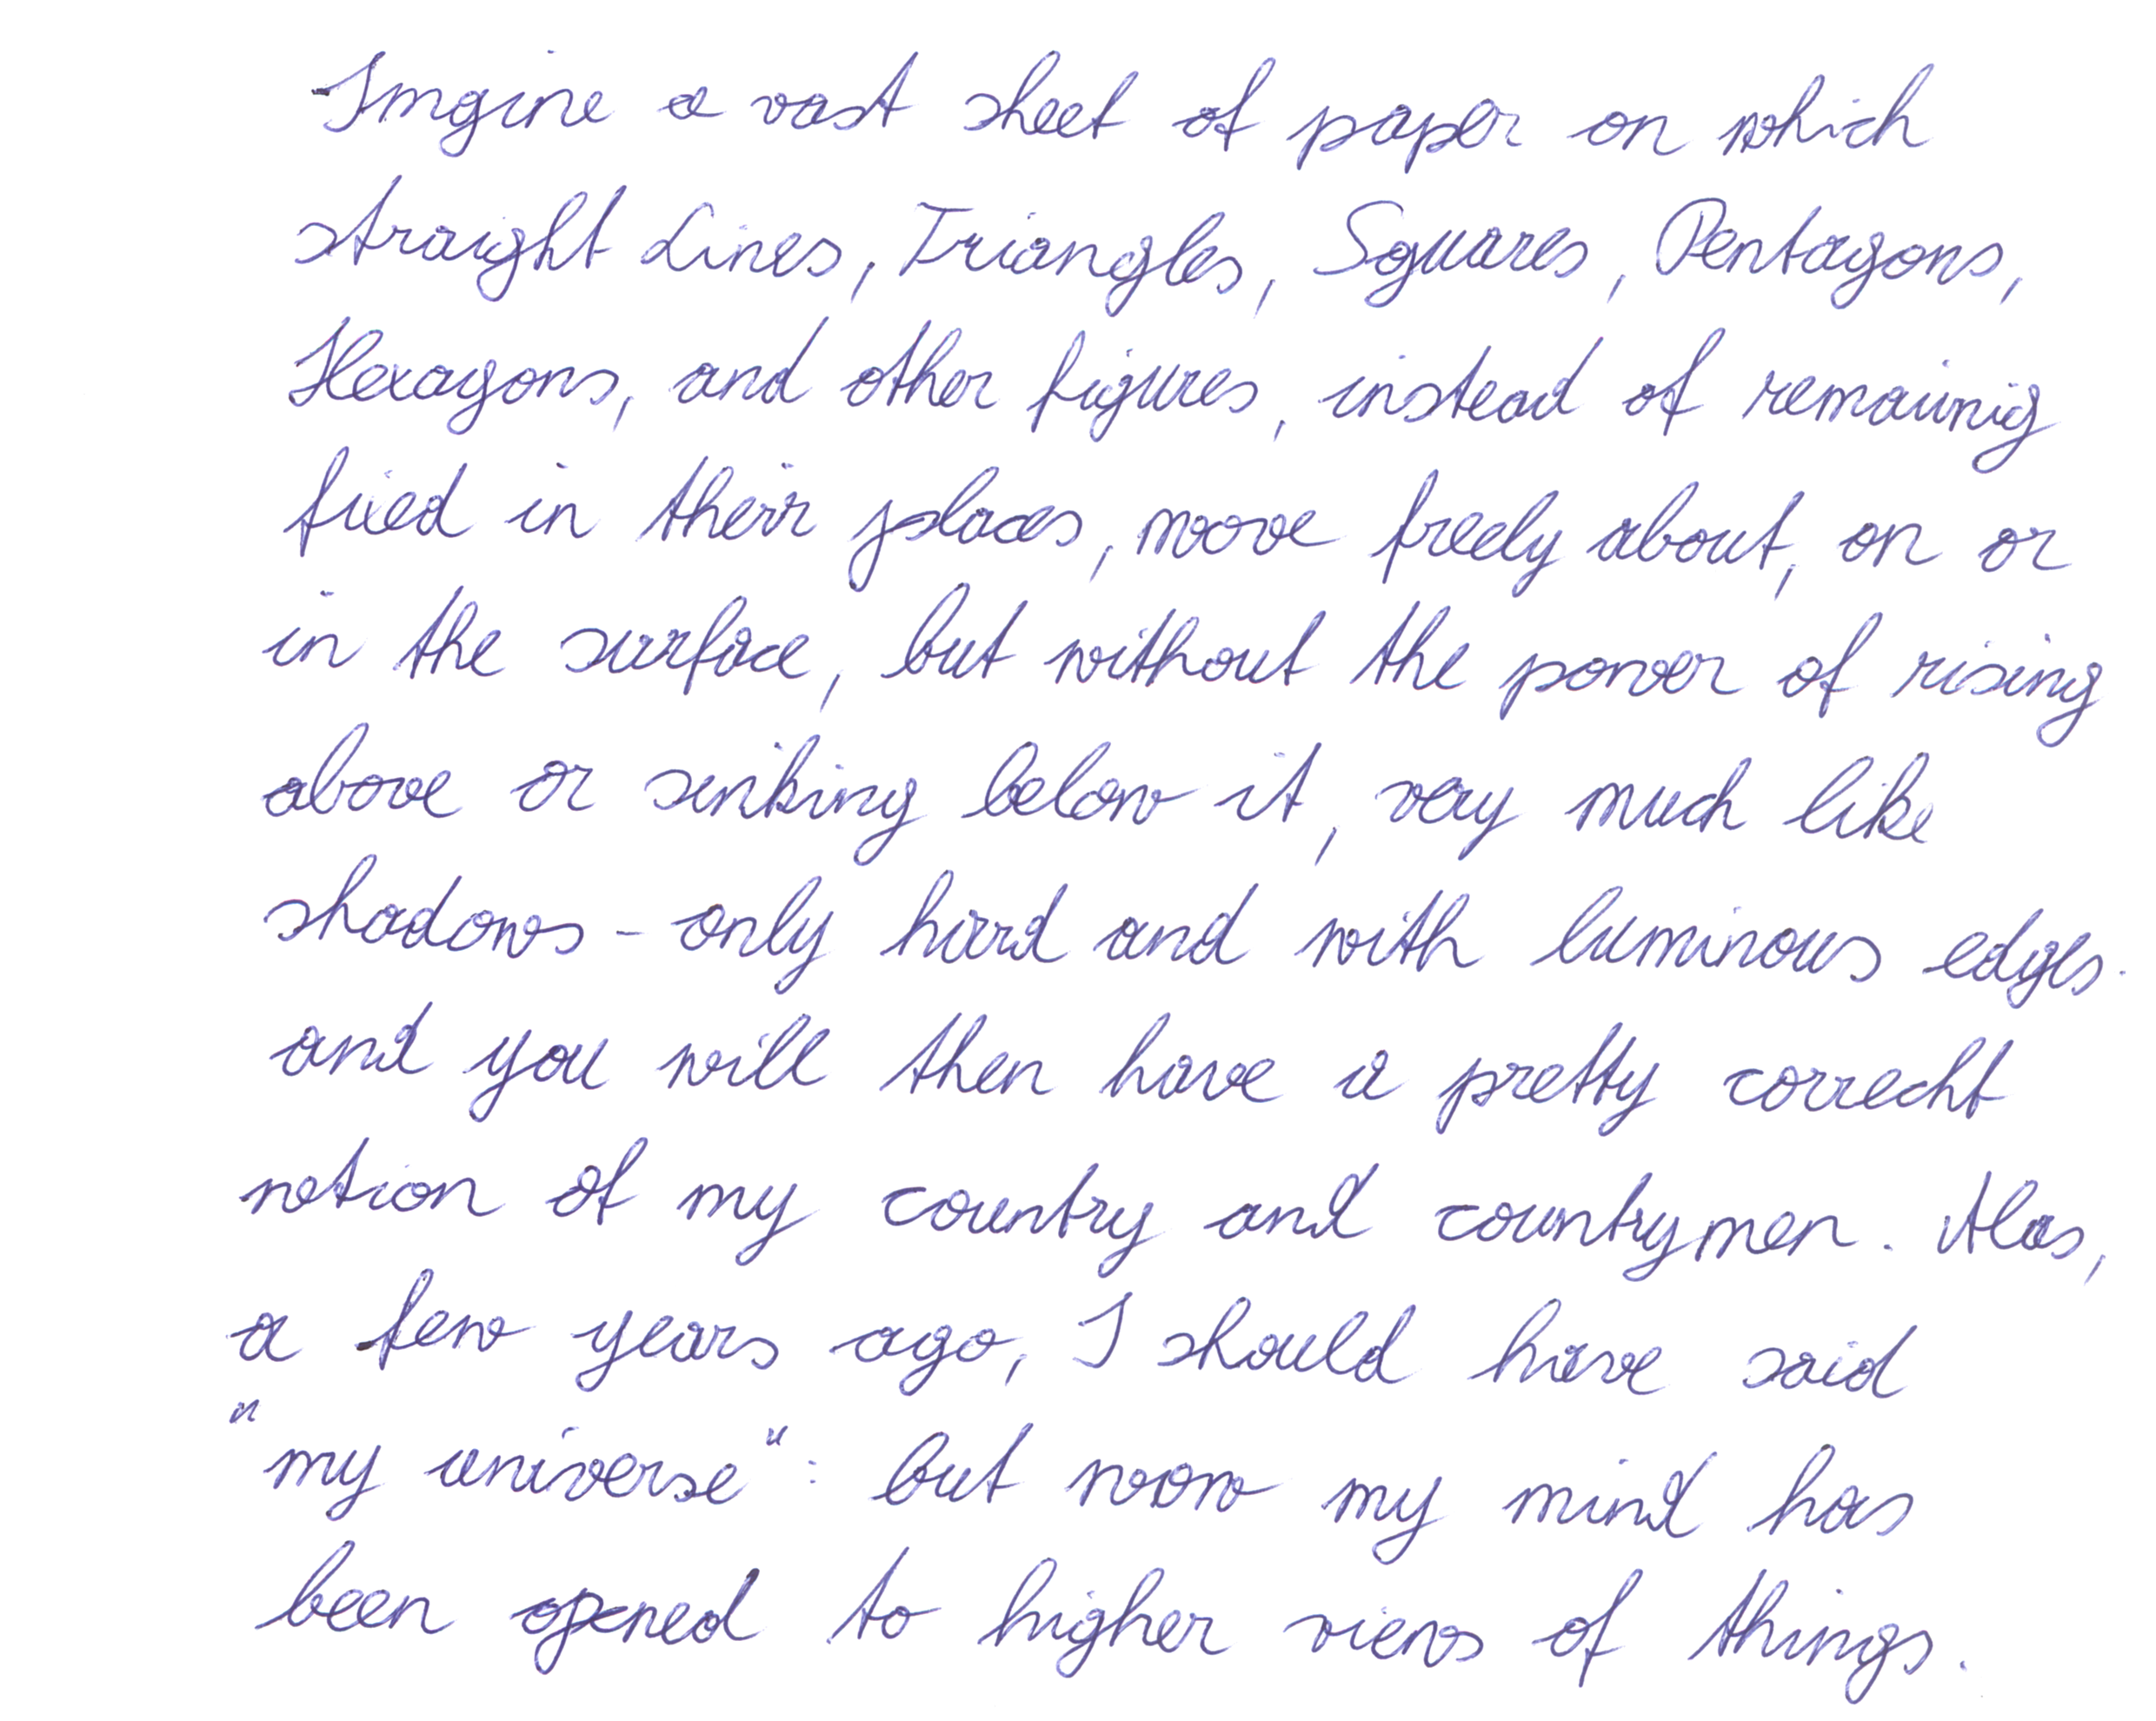 Imgine a vast sheet of paper on which
straight Lines, Triangles, Squares, Pentagons,
Hexagons, and other figures, instead of remainig
fixed in their places, move freely about, on or
in the surface, but without the power of rising
above or sinking below it, very much like
shadows - only hard and with luminous edges.
and you will then have a pretty correcht
notion of my country and countrymen. Alas,
a few years ago, I should have said
"my universe": but now my mind has
been opened to higher views of things.